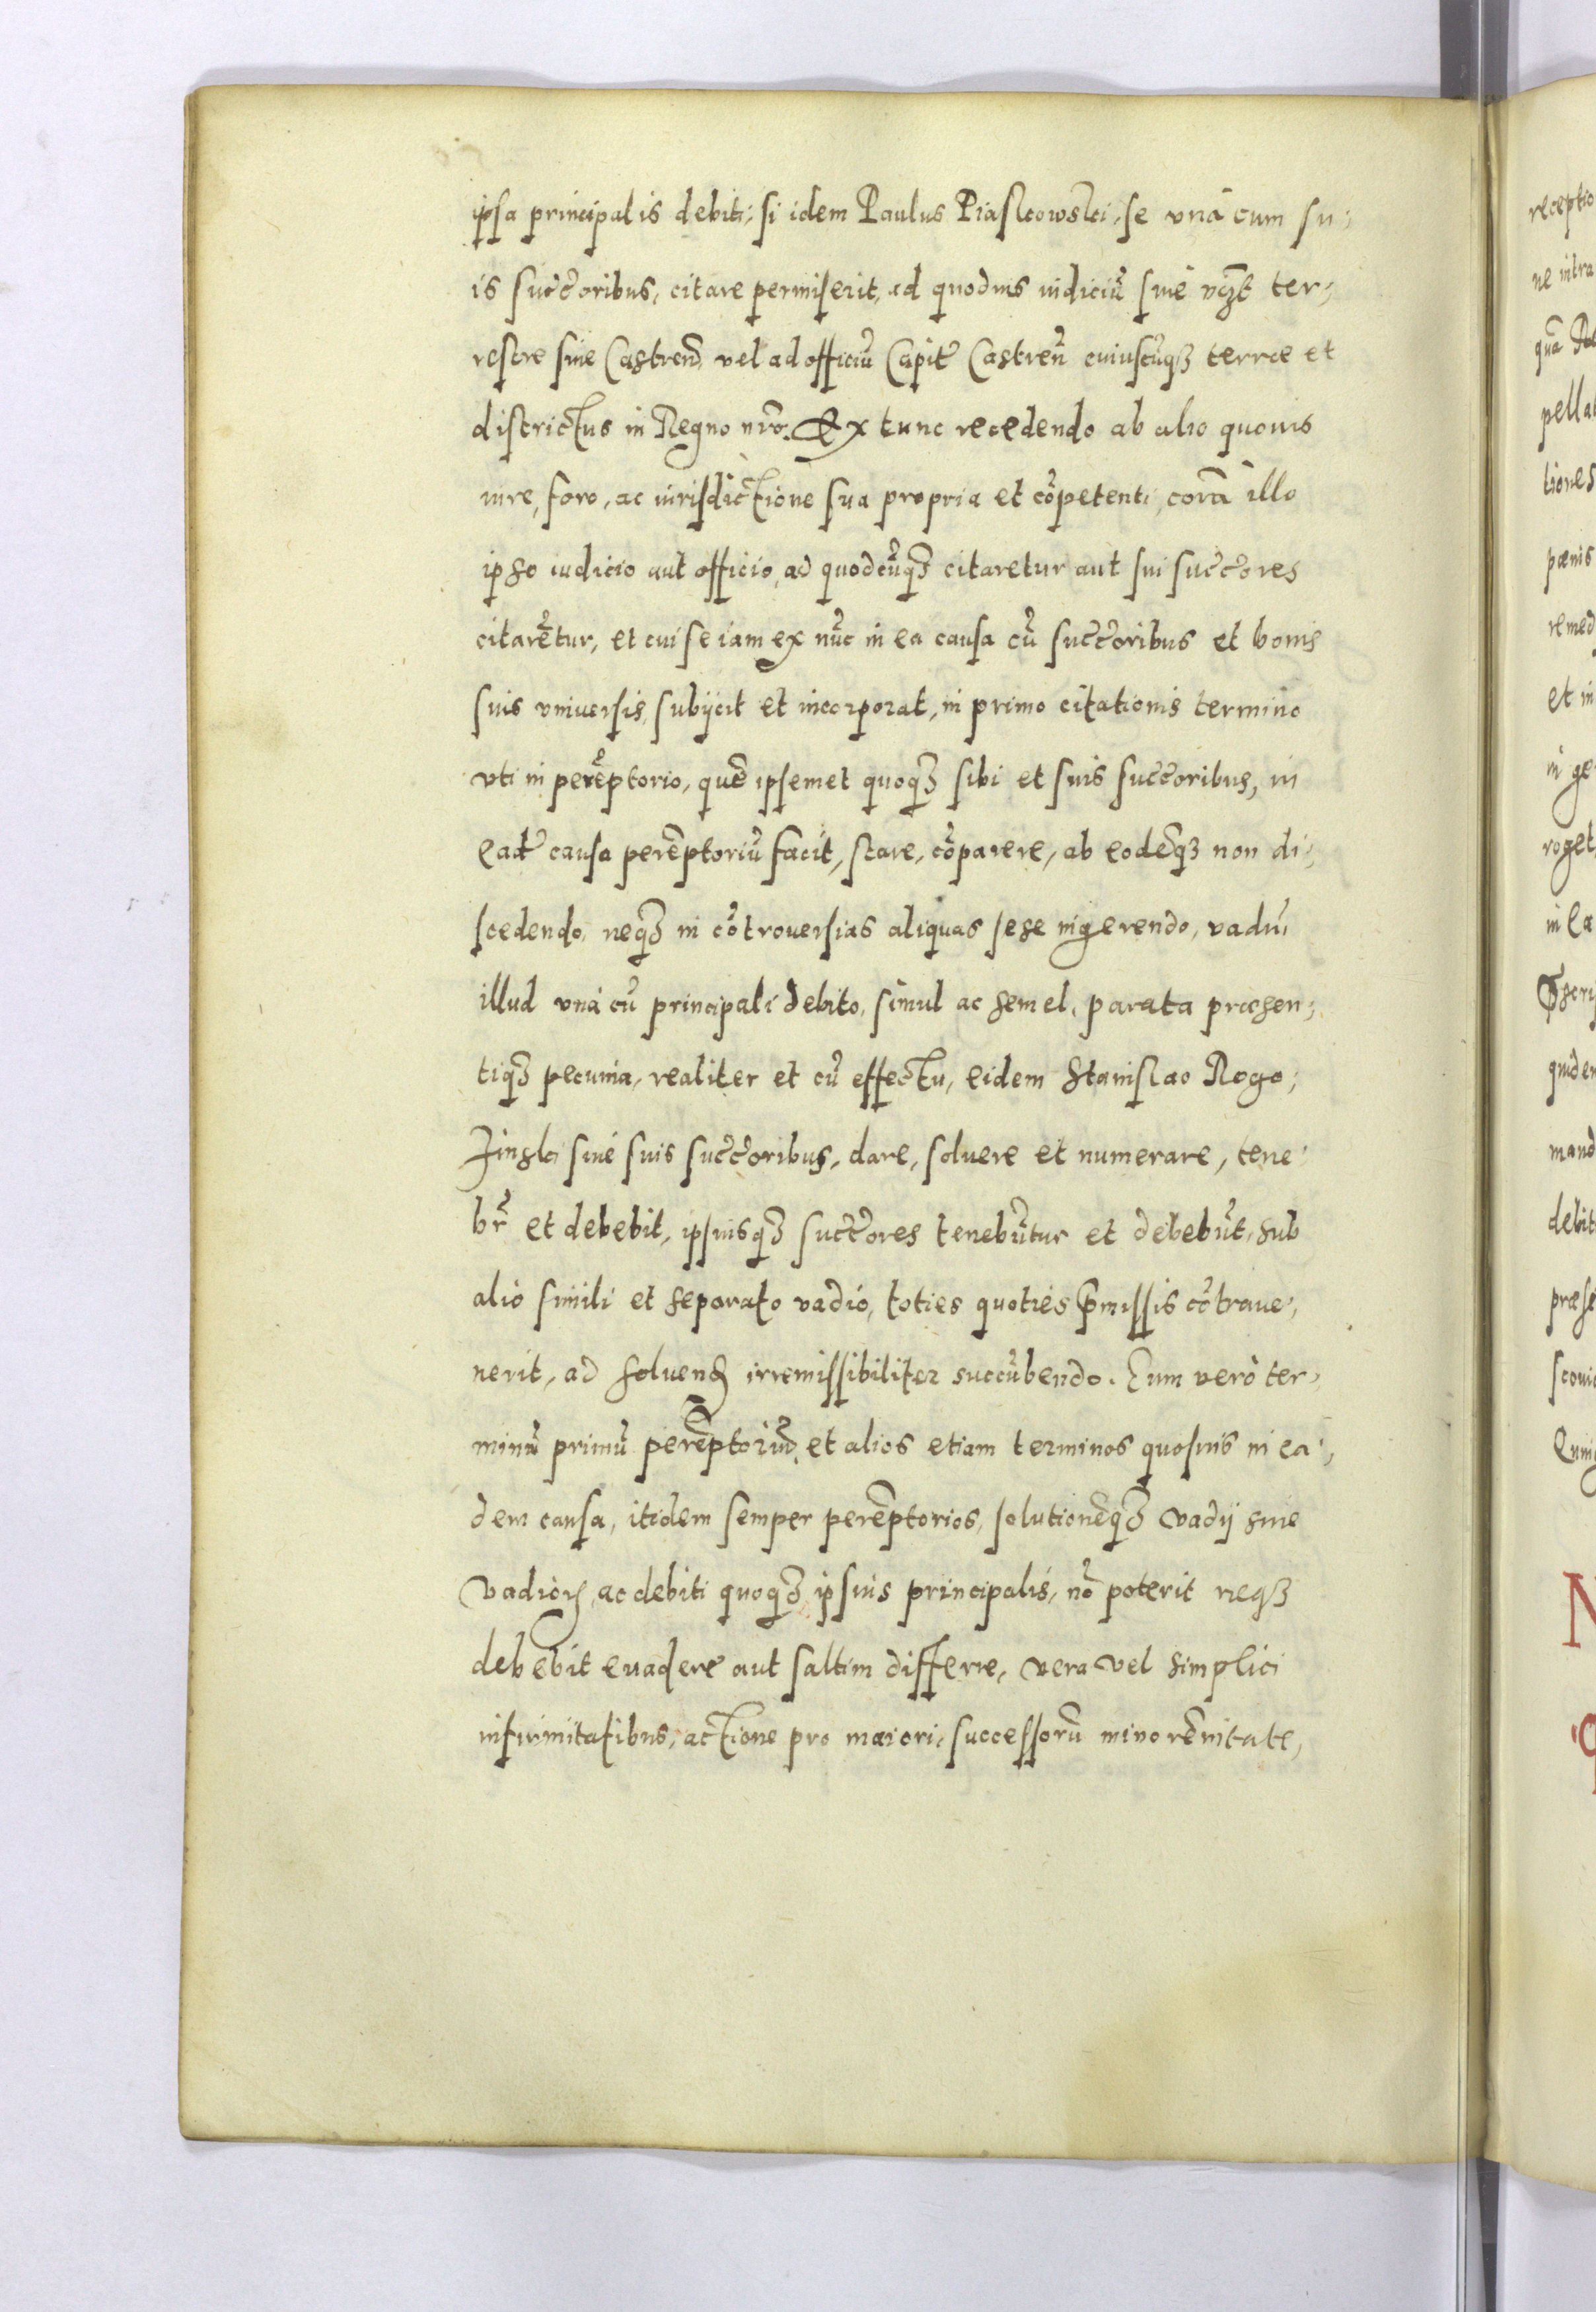 ipsa principalis debiti: si idem Paulus Piaskowski, se vnà cum su;
is succ̃oribus, citare permiserit, ad quoduis iudiciũ siue vꝫt ter;
restre siue Castreñ vel ad officiũ Capit̃ Castreñ cuiuscũqꝫ terrae et
districtus in Regno nr̃o. Ex tunc recedendo ab alio quouis
iure, foro, ac iurisdictione sua propria et cõpetenti, corã illo
ipso iudicio aut officio, ad quodcũqꝫ citaretur aut sui succ̃ores
citarẽtur, et cui se iam ex nũc in ea causa cũ succ̃oribus et bonis
suis vniuersis, subijcit et incorporat, in primo citationis termino
vti in perẽptorio, quẽ ipsemet quoqꝫ sibi et suis succ̃oribus, in
ead̃ causa perẽptoriũ facit, stare, cõparere, ab eodẽqꝫ non di;
scedendo, neqꝫ in cõtrouersias aliquas sese ingerendo, vadiũ
illud vnà cũ principali debito, simul ac semel, parata praesen;
tiqꝫ pecunia, realiter et cũ effectu, eidem Stanislao Rogo;
zinski siue suis succ̃oribus, dare, soluere et numerare, tene;
br̃ et debebit, ipsiusqꝫ succ̃ores tenebũtur et debebũt, sub
alio simili et separato vadio, toties quoties p̃missis cõtraue;
nerit, ad soluenđ irremissibiliter succũbendo. Eum verò ter;
minũ primũ perẽptoriũ, et alios etiam terminos quosuis in ea;
dem causa, itidem semper perẽptorios, solutionẽqꝫ vadij siue
vadioꝝ, ac debiti quoqꝫ ipsius principalis, nõ poterit neqꝫ
debebit euadere aut saltim differre, vera vel simplici
infirmitatibus, actione pro maiori, successorũ minorẽnitate,
receptio
ne intra
pella
tiones
poenis
remed
et in
in ge
roget
in ea
quidem
mand
debit
praese